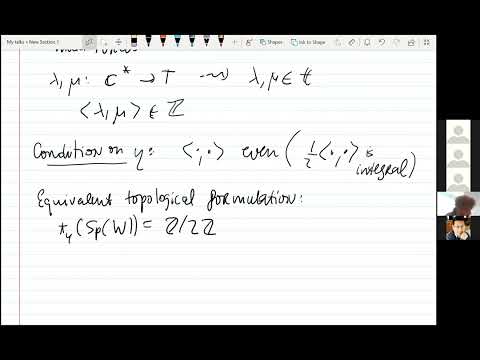 My talks • New Section 1
Shapes
Ink to Shape
λ, μ : ℂ* → T ⇝ λ, μ ∈ t
<λ, μ> ∈ ℤ
Condition on η: <·,·> even (½<·,·> is integral)
Equivalent topological formulation:
π₄(Sp(W)) = ℤ/2ℤ